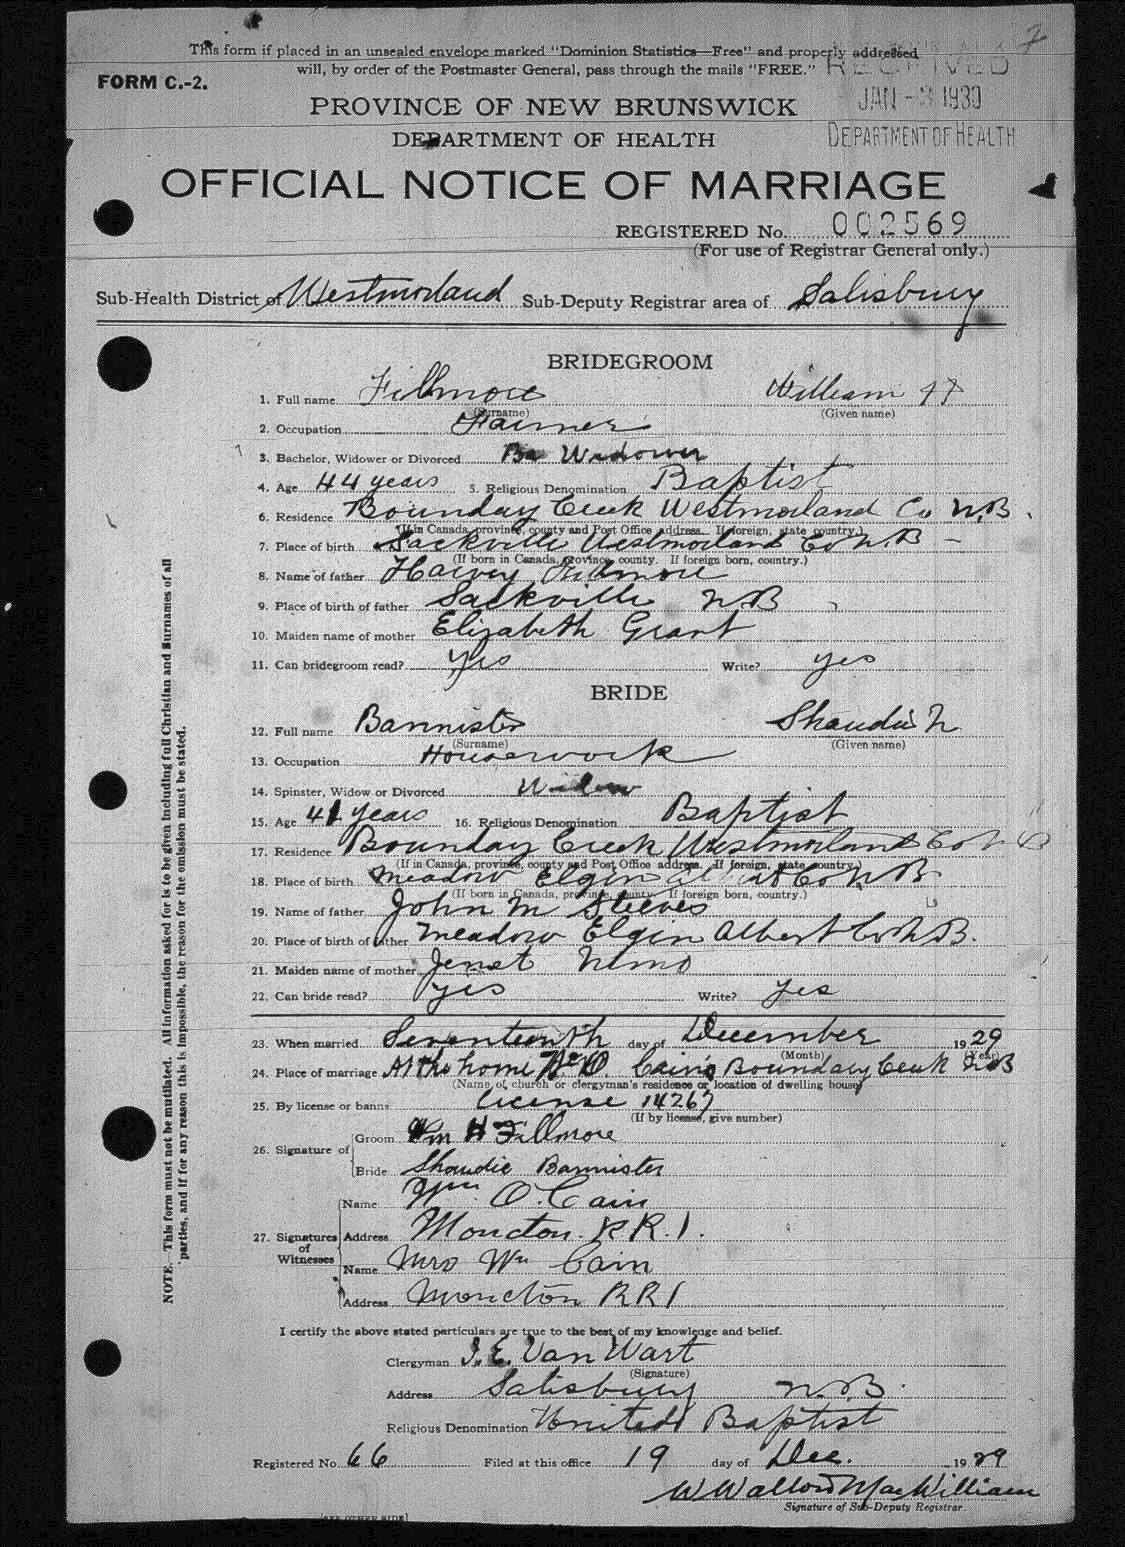 This form if placed in an unsealed envelope marked "Dominion Statistics—Free" and properly addressed
will, by order of the Postmaster General, pass through the mails "FREE."
FORM C.-2.
RECEIVED
JAN -3 1930
DEPARTMENT OF HEALTH
PROVINCE OF NEW BRUNSWICK
DEPARTMENT OF HEALTH
OFFICIAL NOTICE OF MARRIAGE
REGISTERED No. 002569
(For use of Registrar General only.)
Sub-Health District of Westmorland Sub-Deputy Registrar area of Salisbury
BRIDEGROOM
1. Full name Fillmore William H
(Surname) (Given name)
2. Occupation Farmer
3. Bachelor, Widower or Divorced Widower
4. Age 44 years 5. Religious Denomination Baptist
6. Residence Bounday Creek Westmorland Co N.B.
(If in Canada, province, county and Post Office address. If foreign, state country.)
7. Place of birth Sackville Westmorland Co N.B
(If born in Canada, province, county. If foreign born, country.)
8. Name of father Harvey Fillmore
9. Place of birth of father Sackville N B
10. Maiden name of mother Elizabeth Grant
11. Can bridegroom read? Yes Write? yes
BRIDE
12. Full name Bannister Shaudie N
(Surname) (Given name)
13. Occupation Housework
14. Spinster, Widow or Divorced Widow
15. Age 41 years 16. Religious Denomination Baptist
17. Residence Bounday Creek Westmorland Co N B
(If in Canada, province, county and Post Office address. If foreign, state country.)
18. Place of birth Meadow Elgin Albert Co N B
(If born in Canada, province, county. If foreign born, country.)
19. Name of father John M Steeves
20. Place of birth of father Meadow Elgin Albert Co N.B.
21. Maiden name of mother Jenet Nimo
22. Can bride read? yes Write? yes
23. When married Seventeenth day of December 1929
(Month) (Year)
24. Place of marriage At the home Wm O. Cain's Boundary Creek N B
(Name of church or clergyman's residence or location of dwelling house)
25. By license or banns License 14267
(If by license, give number)
26. Signature of Groom Wm H Fillmore
Bride Shaudie Bannister
27. Signatures of Witnesses Name Wm. O. Cain
Address Moncton. R R. 1.
Name Mrs Wm Cain
Address Moncton R R 1
I certify the above stated particulars are true to the best of my knowledge and belief.
Clergyman I. E. Van Wart
(Signature)
Address Salisbury N.B.
Religious Denomination United Baptist
Registered No. 66 Filed at this office 19 day of Dec. 1929
W Wallow MacWilliam
Signature of Sub-Deputy Registrar.
NOTE.—This form must not be mutilated. All information asked for to be given including full Christian and Surnames of all
parties, and if for any reason this is impossible, the reason for the omission must be stated.